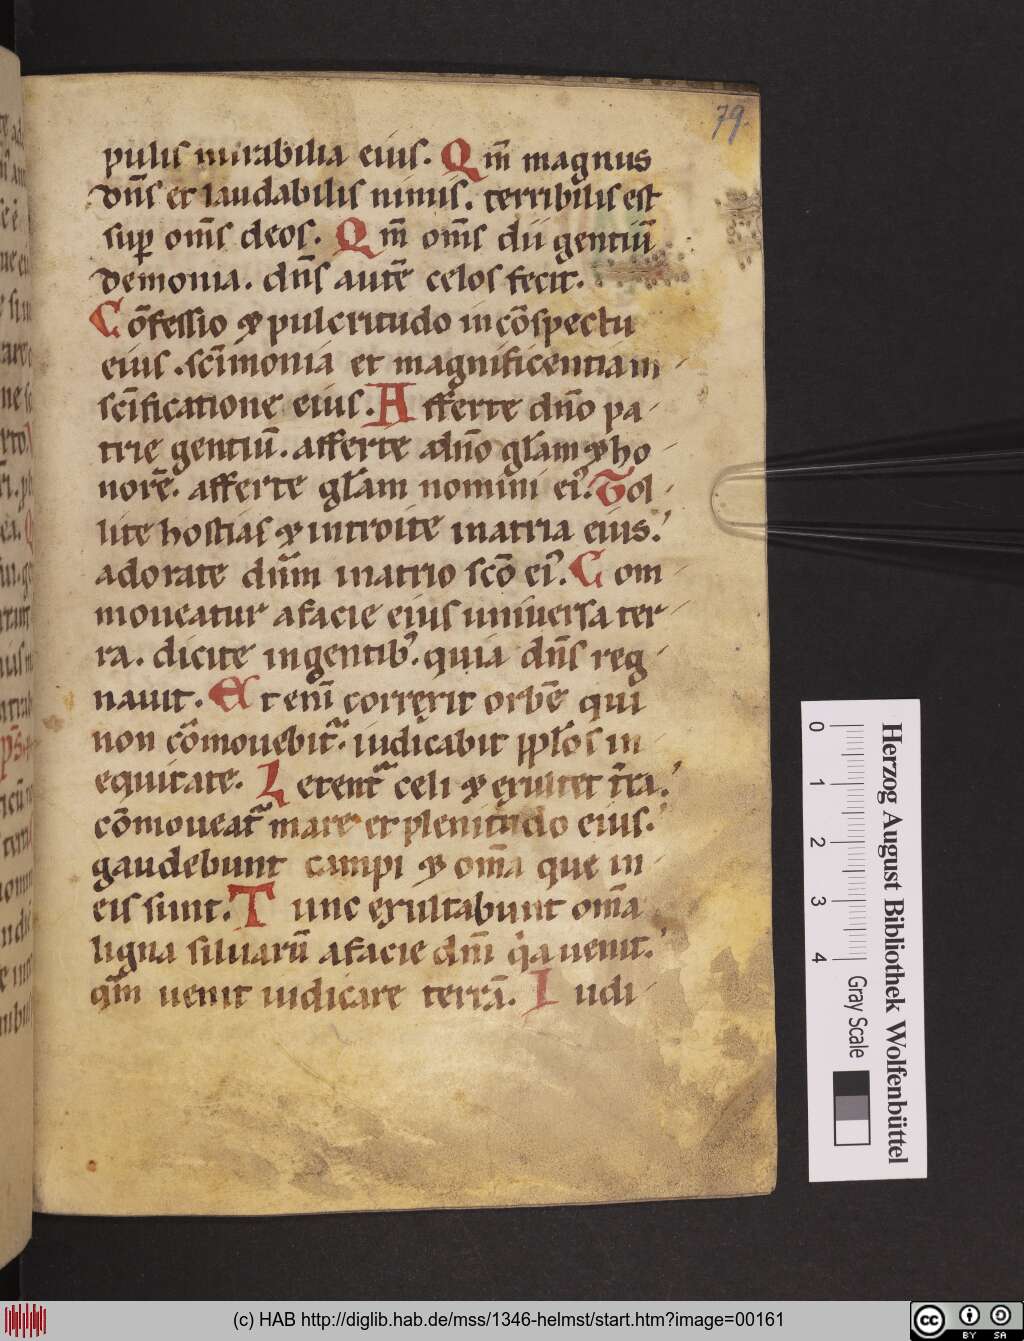 79.
pulis mirabilia eius. Qm̄ magnus
dn̄s et laudabilis nimis. terribilis est
sup̱ om̄s deos. Qm̄ om̄s dii gentiū
demonia. dn̄s autē celos fecit.
Cōfessio ⁊ pulcritudo in cōspectu
eius. sc̄imonia et magnificentia in
sc̄ificatione eius. Afferte dn̄o pa
trie gentiū. afferte dn̄o gl̄am ⁊ ho
norē. afferte gl̄am nomini ei᷒. Tol
lite hostias ⁊ introite in atria eius.
adorate dn̄m in atrio sc̄o ei᷒. Com
moueatur a facie eius uniuersa ter
ra. dicite in gentib᷒. quia dn̄s reg
nauit. Et eni̅ correxit orbē qui
non cōmouebit᷑. iudicabit pp̄los in
equitate. Letent᷑ celi ⁊ exultet t̄ra.
cōmoueat᷑ mare et plenitudo eius.
gaudebunt campi ⁊ om̄a que in
eis sunt. Tunc exultabunt om̄a
ligna siluarū a facie dn̄i qͥa uenit.
qm̄ uenit iudicare terrā. Iudi
0 1 2 3 4
Gray Scale
Herzog August Bibliothek Wolfenbüttel
(c) HAB http://diglib.hab.de/mss/1346-helmst/start.htm?image=00161
cc BY SA